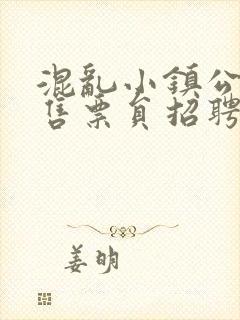 混亂小鎮公
售票員招聘
姜明